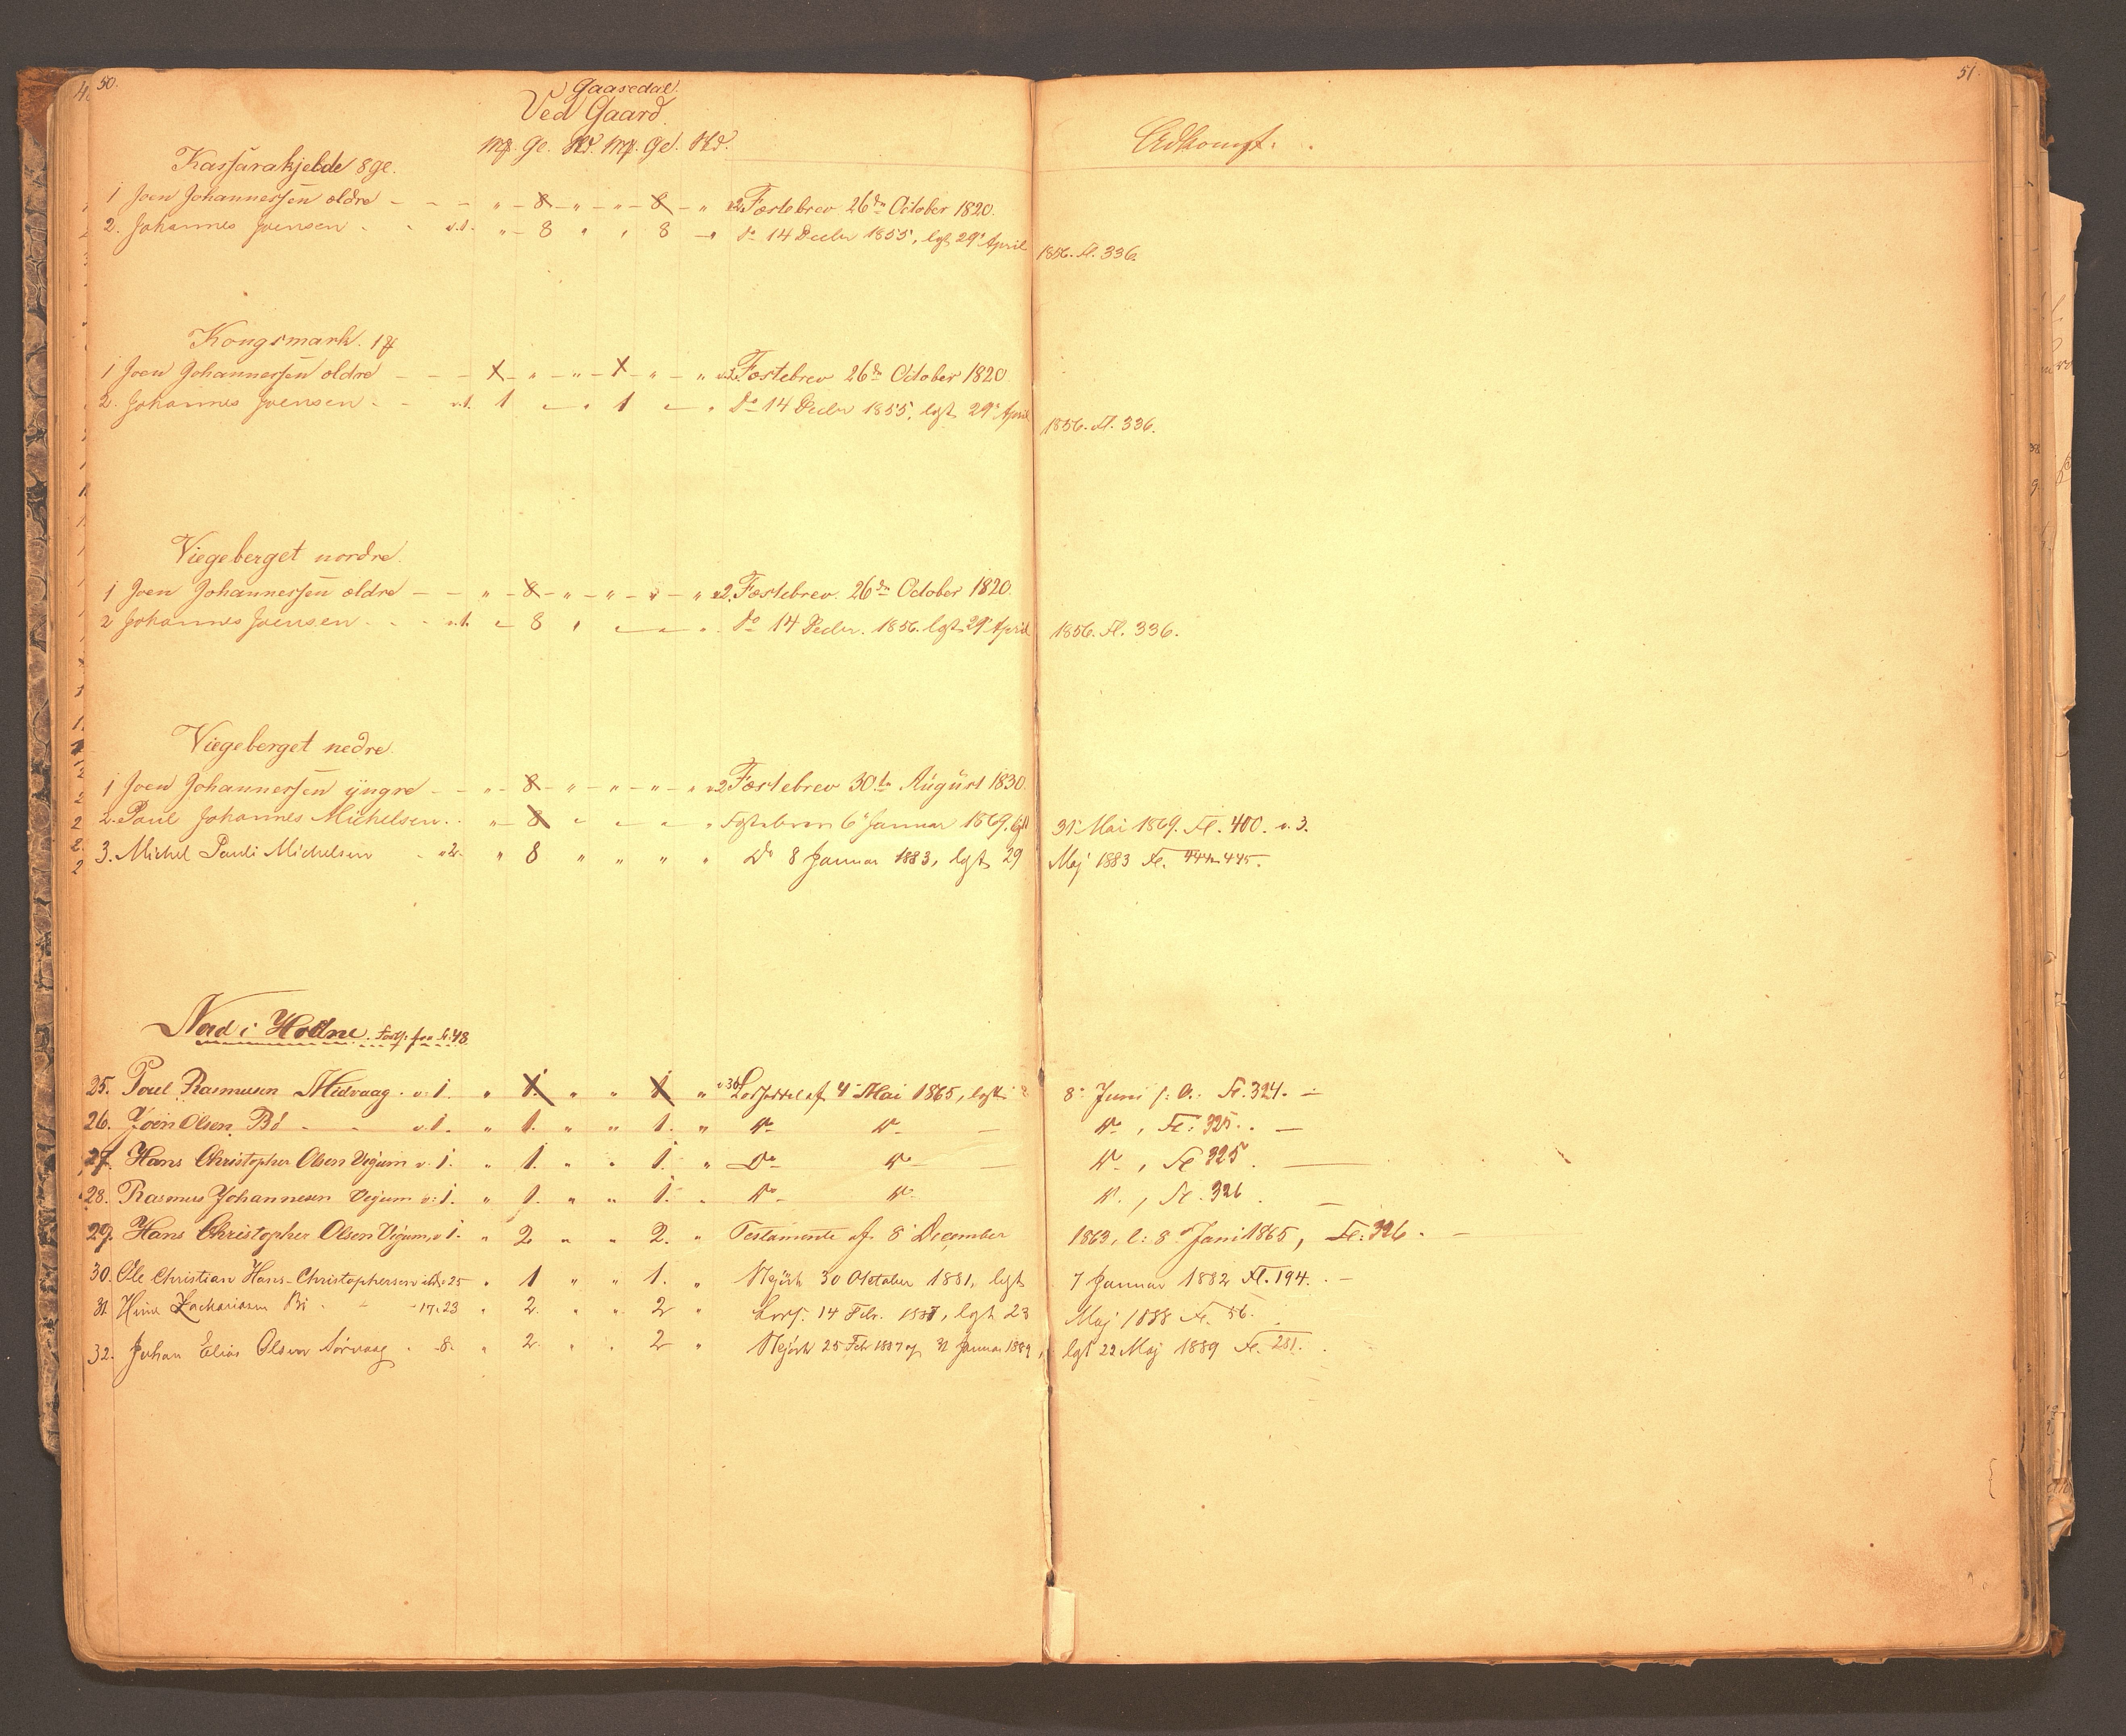 50.
51.
Gaasedal.
Ved Gaard.
Adkomst.
Mk. Gl. Skd. Mk. Gl. Skd.
Kassarakjelde 8 Gl.
1 Joen Johannessen ældre - - - " - 8 - " - " - 8 - " v2. Fæstebrev 26de October 1820.
2. Johannes Joensen . . v.1. " - 8 " " 8 - " Do 14 Decbr 1855, lgt 29' April 1856. Fl. 336.
Kongsmark. 1 Mk
1 Joen Johannessen ældre - - - 1 - " - " - 1 - " - " v.2. Fæstebrev 26de October 1820
2. Johannes Joensen . - v.1. 1 - " 1 - " Do 14 Decbr 1855, lgt 29' April 1856. Fl. 336.
Viegeberget nordre.
1 Joen Johannessen ældre - - " - 8 - " - " - " - " v2. Fæstebrev. 26de October 1820.
2 Johannes Joensen . . . v.1. - 8 " - - " Do 14 Decbr. 1856. lgt 29' April 1856. Fl. 336.
Viegeberget nedre.
1 Joen Johannessen yngre - - " - 8 - " - " - " - " v2 Fæstebrev 30te August 1830.
2. Poul Johannes Michelsen . . " - 8 - - - " 6' Januar 1869, lgt 31' Mai 1869. Fl. 400. v. 3.
3. Michel Pauli Michelsen . v2. " 8 " " " " Do 8 Januar 1883, lgt 29 Maj 1883 Fl. 444-445.
Nord i Holme. Forts. fra S. 48.
25. Poul Rasmusen Midvaag . v. 1. " 1. " " 1. " af 4' Mai 1865, lgt 8' Juni s. A. Fl. 324. -
26. Joen Olsen Bø - - v. 1. " 1. " " 1. " Do Do - Do , Fl. 325. . -
27. Hans Christopher Olsen Vigum v. 1. " 1. " " 1. " Do Do - Do , Fl 325 . -
28. Rasmus Johannesen Vigum v. 1. " 1. " " 1. " Do Do Do , Fl. 326 . -
29. Hans Christopher Olsen Vigum, v 1. " 2 " " 2. " Testamente af 8' December 1863, l: 8' Juni 1865, Fl. 326. -
30. Ole Christian Hans-Christophersen 25 " 1 " " 1. " Skjøde 30 October 1881, lgt 7 Januar 1882 Fl. 194. . -
31. Zachariasen Bø . - - 17. 23 " 2. " " 2 " 14 Febr. 1887, lgt 23 Maj 1888 Fl. 56.
32. Johan Elias Olsen Sørvaag . 8. " 2. " " 2 " Skjøde 25 Febr 1887 og 31 Januar 1889, lgt 22 Maj 1889 Fl. 281.